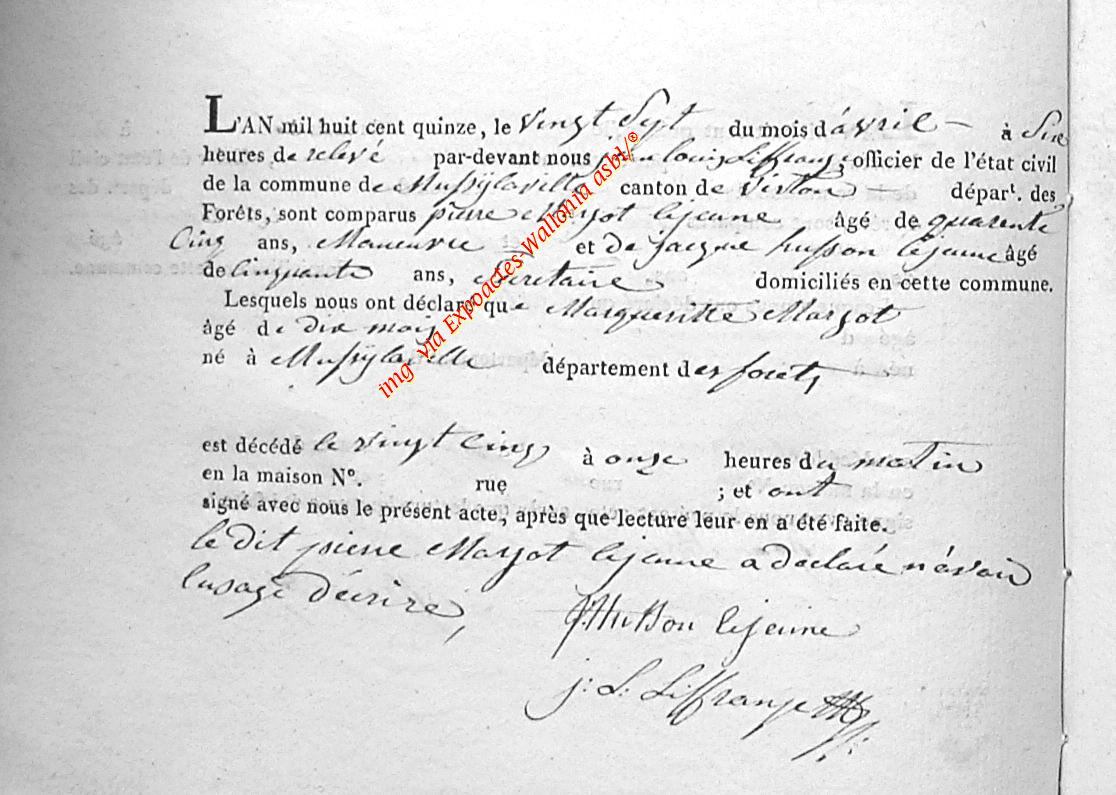 L'AN mil huit cent quinze, le vingt Sept du mois d'avril — à Six
heures de relevé par-devant nous jean louis Liffrange, officier de l'état civil
de la commune de Mussylaville canton de Virton — dépar^t. des
Forêts, sont comparus pierre Margot lejeune âgé de quarente
Cinq ans, Maneuvre et et de jacque husson lejeune âgé
de Cinquante ans, Secretaire domiciliés en cette commune.
Lesquels nous ont déclaré que Margueritte Margot
âgé de dix mois
né à Mussylaville département des forets
est décédé le vingt Cinq à onze heures du matin
en la maison N°. rue ; et ont
signé avec nous le présent acte, après que lecture leur en a été faite.
le dit pierre Margot lejeune a declaré n'avoir
l'usage d'ecrire,
J Husson lejeune
j: L: Liffrange
img via Expoactes Wallonia asbl/®